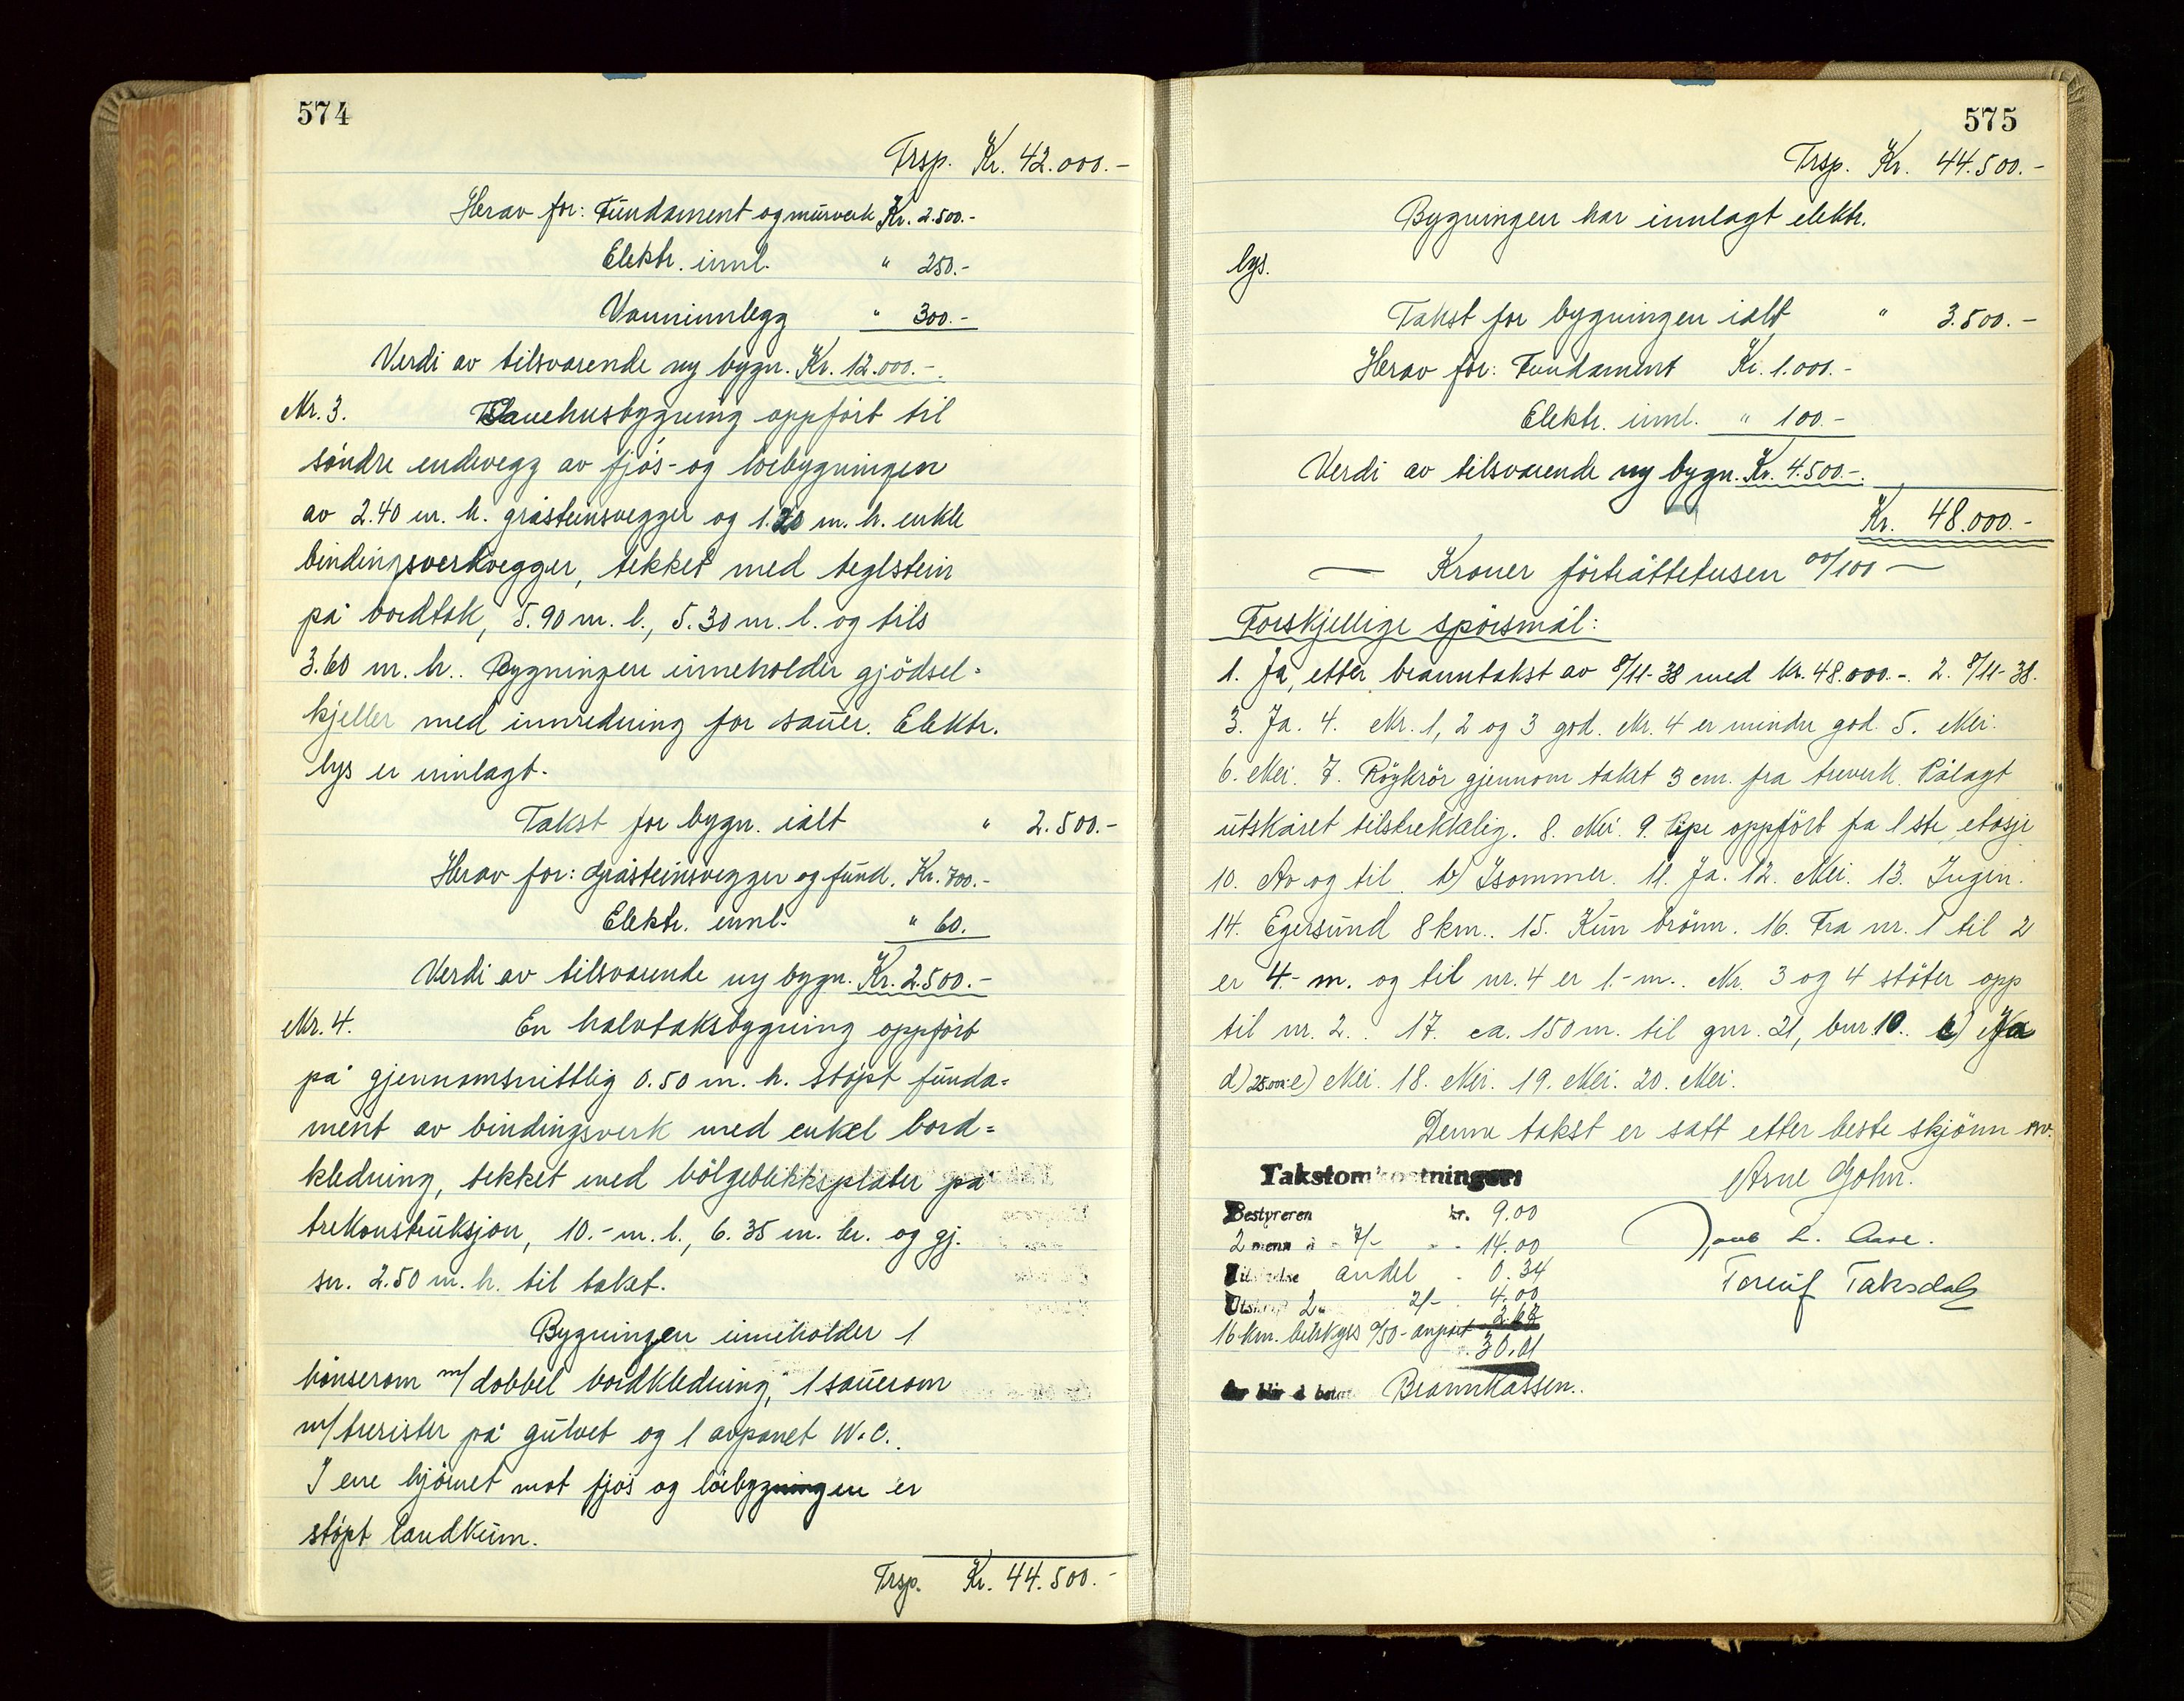 574
Trsp. Kr. 42.000.-
Herav for: Fundament og murverk Kr. 2.500.-
Elektr. innl. " 250.-
Vanninnlegg " 300.-
Verdi av tilsvarende ny bygn. Kr. 12.000.-.
Nr. 3. Sauehusbygning oppfört til
söndre endevegg av fjös- og löebygningen
av 2.40 m. h. gråsteinsvegger og 1.20 m. h. enkle
bindingsverkvegger, tekket med teglstein
på bordtak, 5.90 m. l., 5.30 m. b. og tils
3.60 m. h.. Bygningen inneholder gjödsel=
kjeller med innredning for sauer. Elektr.
lys er innlagt.
Takst for bygn. ialt " 2.500.-
Herav for: Gråsteinsvegger og fund. Kr. 700.-
Elektr. innl. " 60.
Verdi av tilsvarende ny bygn. Kr. 2.500.-
Nr. 4. En halvtaksbygning oppfört
på gjennomsnittlig 0.50 m. h. stöpt funda=
ment av bindingsverk med enkel bord=
kledning, tekket med bölgeblikksplater på
trekonstruksjon, 10.- m. l., 6.35 m. br. og gj.
sn. 2.50 m. h. til taket.
Bygningen inneholder 1
hönserom m/ dobbel bordkledning, 1 sauerom
m/ trerister på gulvet og 1 avpanet W.C..
I ene hjörnet mot fjös og löebygningen er
stöpt landkum.
Trsp. Kr. 44.500.-
575
Trsp. Kr. 44.500.-
Bygningen har innlagt elektr.
lys.
Takst for bygningen ialt " 3.500.-
Herav for: Fundament Kr. 1.000.-
Elektr. innl. " 100.-
Verdi av tilsvarende ny bygn. Kr. 4.500.-.
Kr. 48.000.-
— Kroner förtiåttetusen 00/100 —
Forskjellige spörsmål:
1. Ja, etter branntakst av 8/11-38 med kr. 48.000.-. 2. 8/11-38.
3. Ja. 4. Nr. 1, 2 og 3 god. Nr. 4 er mindre god. 5. Nei.
6. Nei. 7. Röykrör gjennom taket 3 cm. fra treverk. Pålagt
utskåret tilstrekkelig. 8. Nei. 9. Pipe oppfört fra 1ste etasje.
10. Av og til. b) Isommer. 11. Ja. 12. Nei. 13. Ingen.
14. Egersund 8 km.. 15. Kun brönn. 16. Fra nr. 1 til 2
er 4.- m. og til nr. 4 er 1.- m.. Nr. 3 og 4 stöter opp
til nr. 2.. 17. ca. 150 m. til gnr. 21, bnr. 10. c) Ja
d) 25.000 e) Nei. 18. Nei. 19. Nei. 20. Nei.
Denne takst er satt etter beste skjönn av.
Takstomkostningen
Arne Gohn.
Bestyreren kr. 9.00
2 menn à - 7/- - - 14.00
andel - 0.34
Utskrift 2 2/- 4.00
16 km. bilskyss 0/50 - anpart 2.67
30.01
Taksdal
Brannkassen..